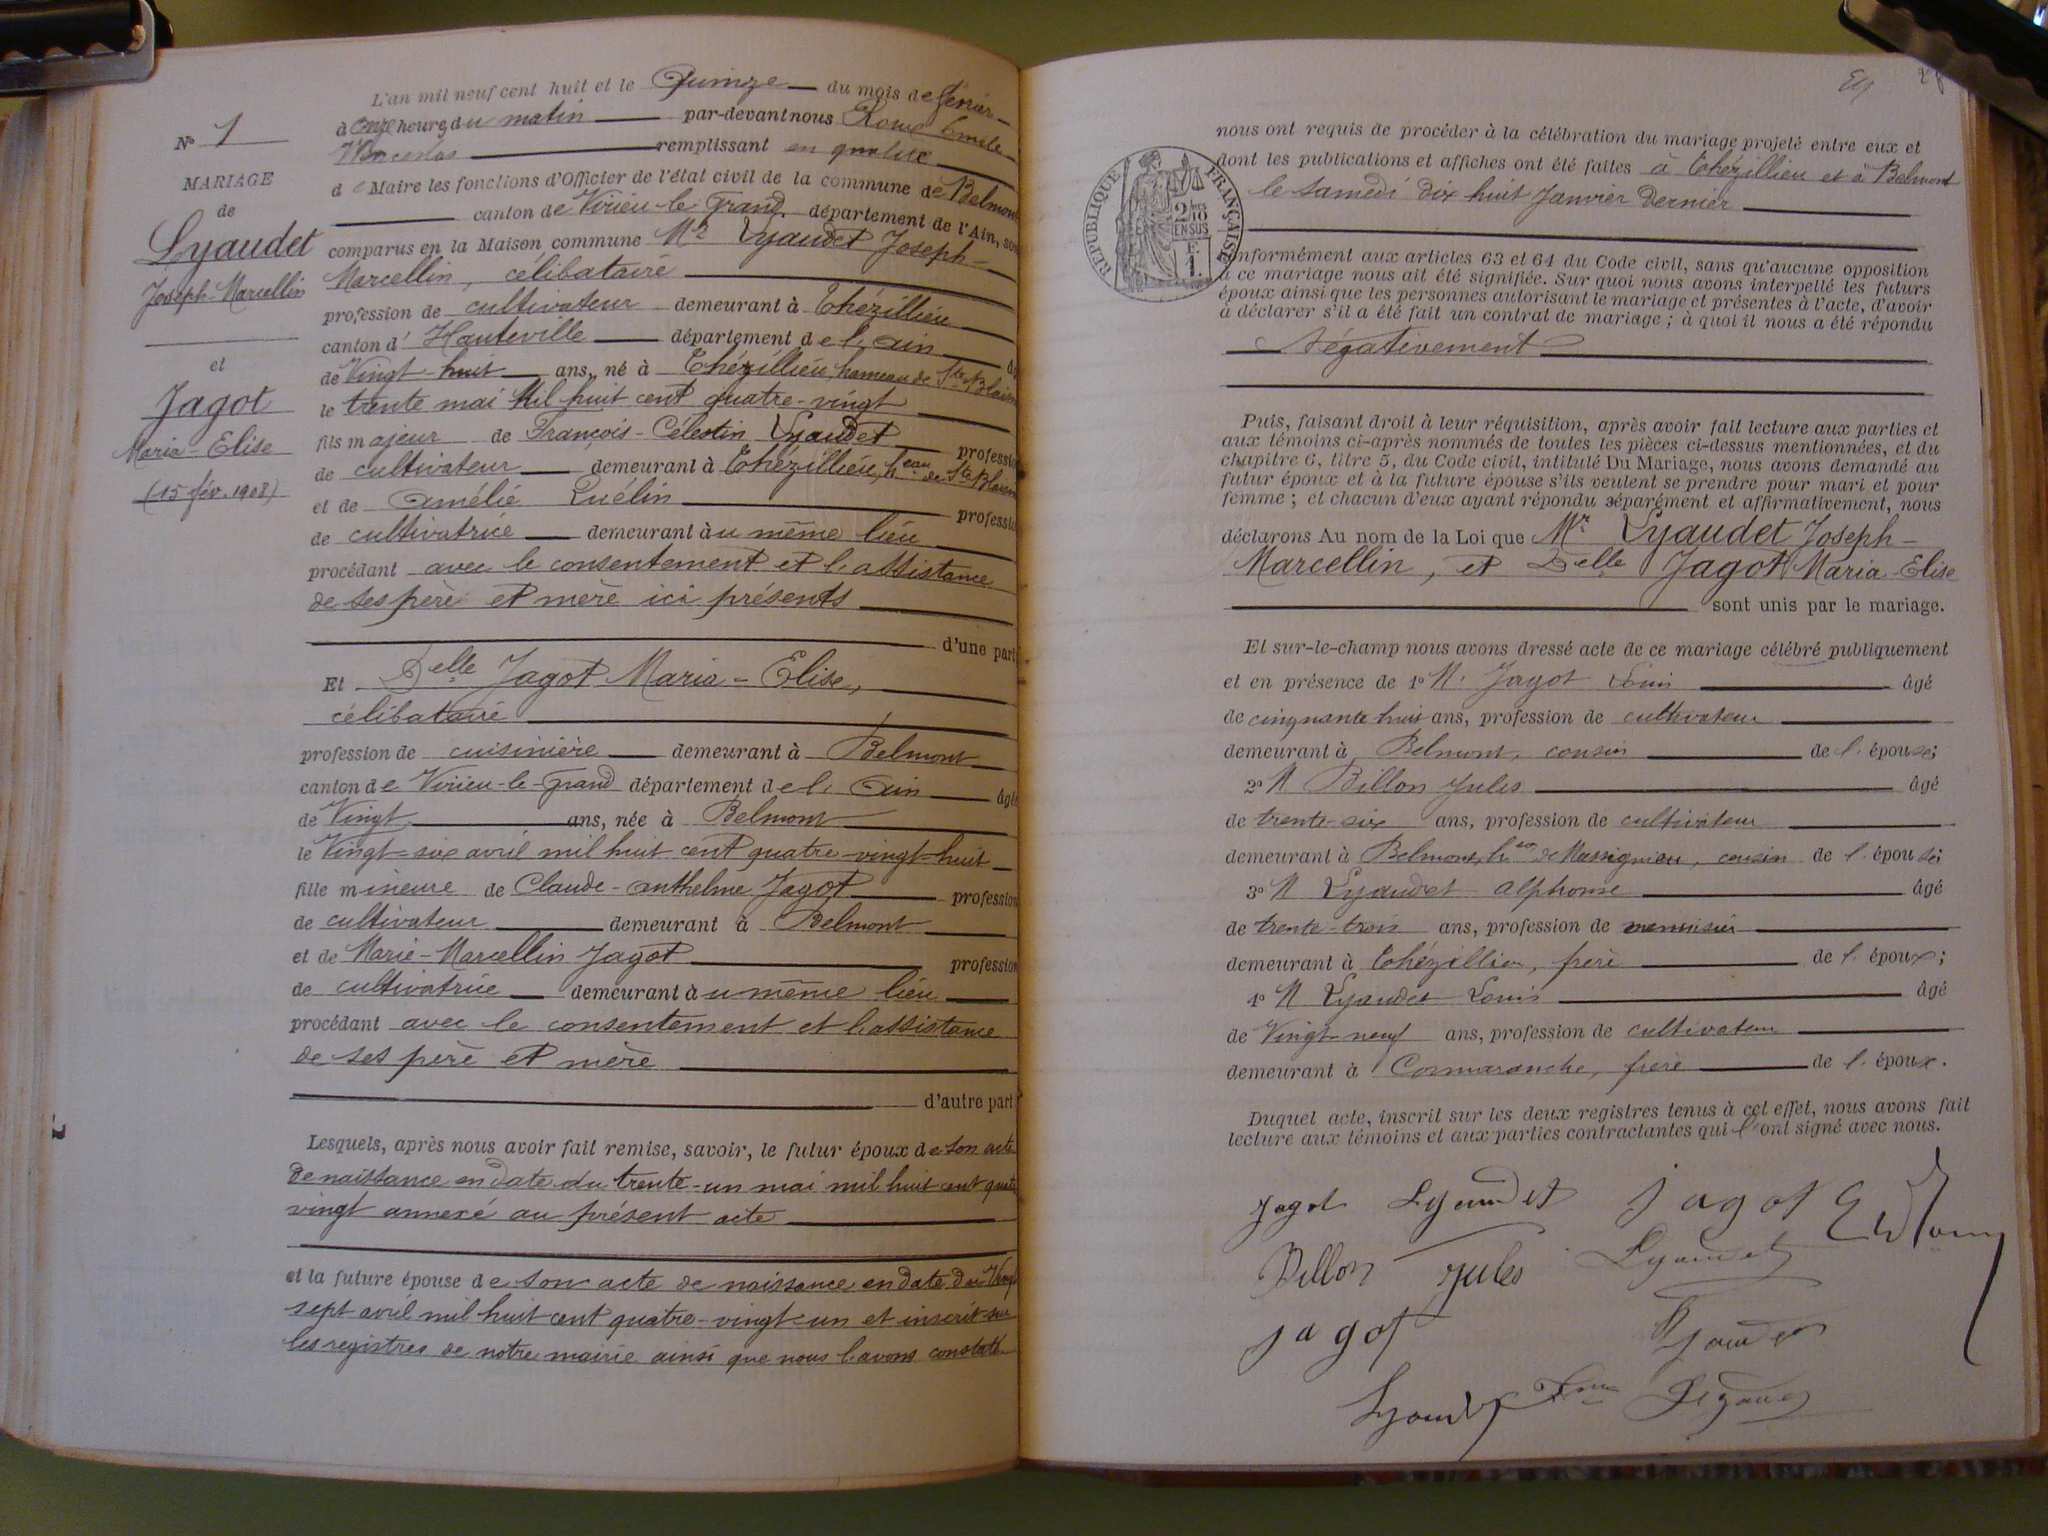 L'an mil neuf cent huit et le Quinze du mois de février
à onze heures du matin par-devant nous
remplissant en qualité
de Maire les fonctions d'Officier de l'état civil de la commune de Belmont
canton de Virieu-le-Grand, département de l'Ain, sont
comparus en la Maison commune Mr Lyaudet Joseph-
Marcellin, célibataire
profession de cultivateur demeurant à Thézillieu
canton d' Hauteville département de l'Ain
de Vingt-huit ans, né à Thézillieu, hameau de Ste Blaizine
le trente mai Mil huit cent quatre-vingt
fils majeur de François-Célestin Lyaudet profession
de cultivateur demeurant à Thézillieu, heau de Ste Blaizine
et de Amélie Luélin profession
de cultivatrice demeurant au même lieu
procédant avec le consentement et l'assistance
de ses père et mère ici présents
d'une part
Et Delle Jagot Maria-Elise,
célibataire
profession de cuisinière demeurant à Belmont
canton de Virieu-le-Grand département de l'Ain âgée
de Vingt ans, née à Belmont
le Vingt-six avril mil huit cent quatre-vingt-huit
fille mineure de Claude-Anthelme Jagot profession
de cultivateur demeurant à Belmont
et de Marie-Marcellin Jagot profession
de cultivatrice demeurant au même lieu
procédant avec le consentement et l'assistance
de ses père et mère
d'autre part
Lesquels, après nous avoir fait remise, savoir, le futur époux de son acte
de naissance en date du trente-un mai mil huit cent quatre
vingt annexé au présent acte
et la future épouse de son acte de naissance en date du Vingt
sept avril mil huit cent quatre-vingt-un et inscrit sur
les registres de notre mairie ainsi que nous l'avons constaté
No 1
MARIAGE
de
Lyaudet
Joseph-Marcellin
et
Jagot
Maria-Elise
(15 fév. 1908)
nous ont requis de procéder à la célébration du mariage projeté entre eux et
dont les publications et affiches ont été faites à Thézillieu et à Belmont
le samedi dix huit Janvier dernier
RÉPUBLIQUE FRANÇAISE
2/10
EN SUS
1 F.
Conformément aux articles 63 et 64 du Code civil, sans qu'aucune opposition
à ce mariage nous ait été signifiée. Sur quoi nous avons interpellé les futurs
époux ainsi que les personnes autorisant le mariage et présentes à l'acte, d'avoir
à déclarer s'il a été fait un contrat de mariage ; à quoi il nous a été répondu
Négativement
Puis, faisant droit à leur réquisition, après avoir fait lecture aux parties et
aux témoins ci-après nommés de toutes les pièces ci-dessus mentionnées, et du
chapitre 6, titre 5, du Code civil, intitulé Du Mariage, nous avons demandé au
futur époux et à la future épouse s'ils veulent se prendre pour mari et pour
femme ; et chacun d'eux ayant répondu séparément et affirmativement, nous
déclarons Au nom de la Loi que Mr Lyaudet Joseph-
Marcellin, et Delle Jagot Maria-Elise
sont unis par le mariage.
Et sur-le-champ nous avons dressé acte de ce mariage célébré publiquement
et en présence de 1° M. Jagot Louis âgé
de cinquante huit ans, profession de cultivateur
demeurant à Belmont, cousin de l'épouse;
2° M Billon Jules âgé
de trente-six ans, profession de cultivateur
demeurant à Belmont, heau de Massignieu, cousin de l'épouse;
3° M Lyaudet Alphonse âgé
de trente-trois ans, profession de menuisier
demeurant à Thézillieu, frère de l'époux;
4° M Lyaudet Louis âgé
de Vingt-neuf ans, profession de cultivateur
demeurant à Cormaranche, frère de l'époux.
Duquel acte, inscrit sur les deux registres tenus à cet effet, nous avons fait
lecture aux témoins et aux parties contractantes qui l'ont signé avec nous.
Jagot Lyaudet Jagot
Billon Jules Lyaudet
Jagot Lyaudet
Lyaudet